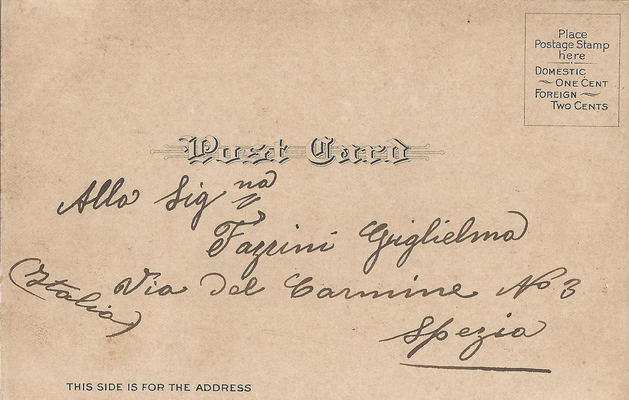 Place
Postage Stamp
here
DOMESTIC
ONE CENT
FOREIGN
TWO CENTS
Post Card
Alla Sig na
Fazzini Guglielma
Via del Carmine No 3
(Italia)
Spezia
THIS SIDE IS FOR THE ADDRESS